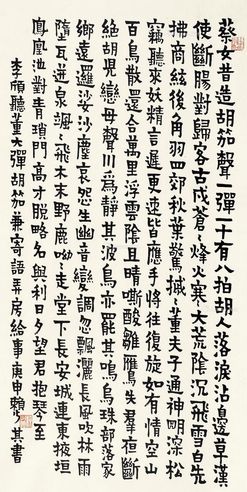 蔡女昔造胡笳聲一彈一十有八拍胡人落淚沾邊草漢
使斷腸對歸客古戍蒼、烽火寒大荒陰沉飛雪白先
拂商絃後角羽四郊秋葉驚摵、董夫子通神明深松
竊聽來妖精言遲更速皆應手將往復旋如有情空山
百鳥散還合萬里浮雲陰且晴嘶酸雛雁失群夜斷
絕胡兒戀母聲川為靜其波鳥亦罷其鳴烏珠部落家
鄉遠邏娑沙塵哀怨生幽音變調忽飄灑長風吹林雨
墮瓦迸泉颯、飛木末野鹿呦、走堂下長安城連東掖垣
鳳凰池對青瑣門高才脫略名與利日夕望君抱琴至
李頎聽董大彈胡笳兼寄語弄房給事庚申賴其書